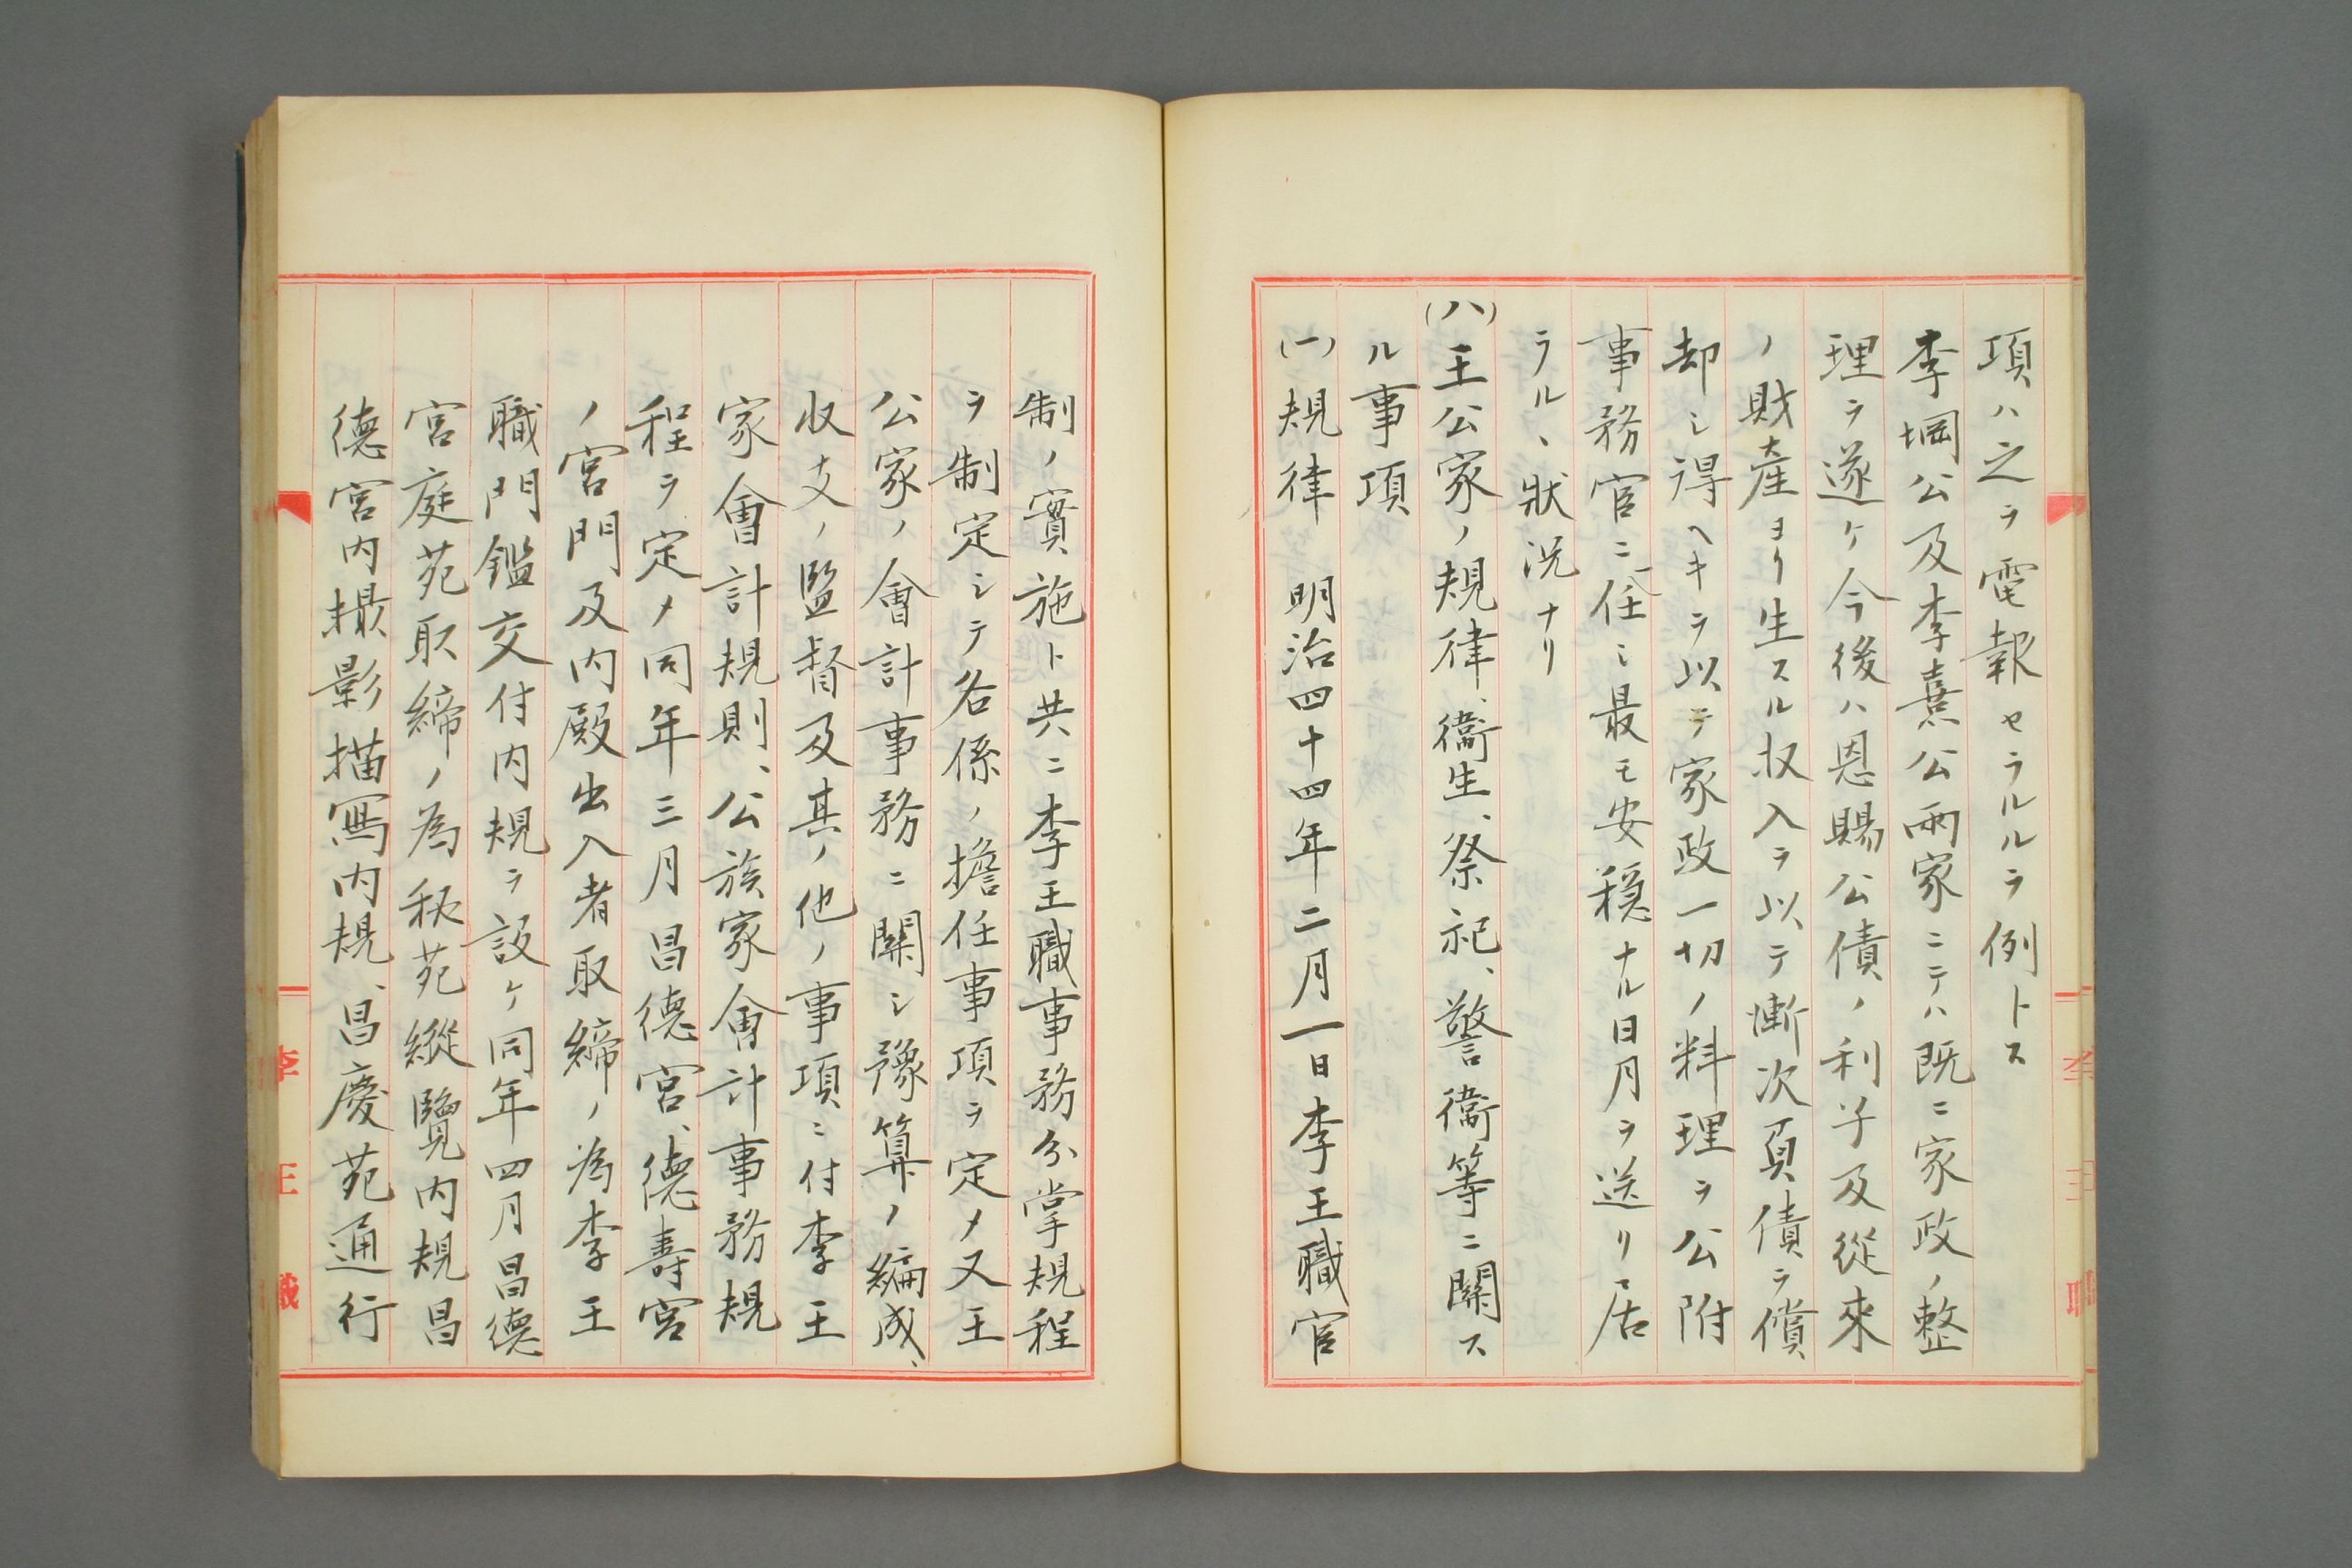 項ハ之ヲ電報セラルルヲ例トス
李堈公及李熹公兩家ニテハ既ニ家政ノ整
理ヲ遂ケ今後ハ恩賜公債ノ利子及從來
ノ財產ヨリ生スル収入ヲ以テ漸次負債ヲ償
却シ得ヘキヲ以テ家政一切ノ料理ヲ公附
事務官ニ一任シ最モ安穏ナル日月ヲ送リ居
ラル、狀況ナリ
(八)王公家ノ規律、衞生、祭祀、警衞等ニ關ス
ル事項
(一)規律 明治四十四年二月一日李王職官
制ノ實施ト共ニ李王職事務分掌規程
ヲ制定シテ各係ノ擔任事項ヲ定メ又王
公家ノ會計事務ニ關シ豫算ノ編成、
収支ノ監督及其ノ他ノ事項ニ付李王
家會計規則、公族家會計事務規
程ヲ定メ同年三月昌德宮、德壽宮
ノ宮門及内殿出入者取締ノ為李王
職門鑑交付内規ヲ設ケ同年四月昌德
宮庭苑取締ノ為秘苑縱覽内規昌
德宮内撮影描寫内規、昌慶苑通行
李王職